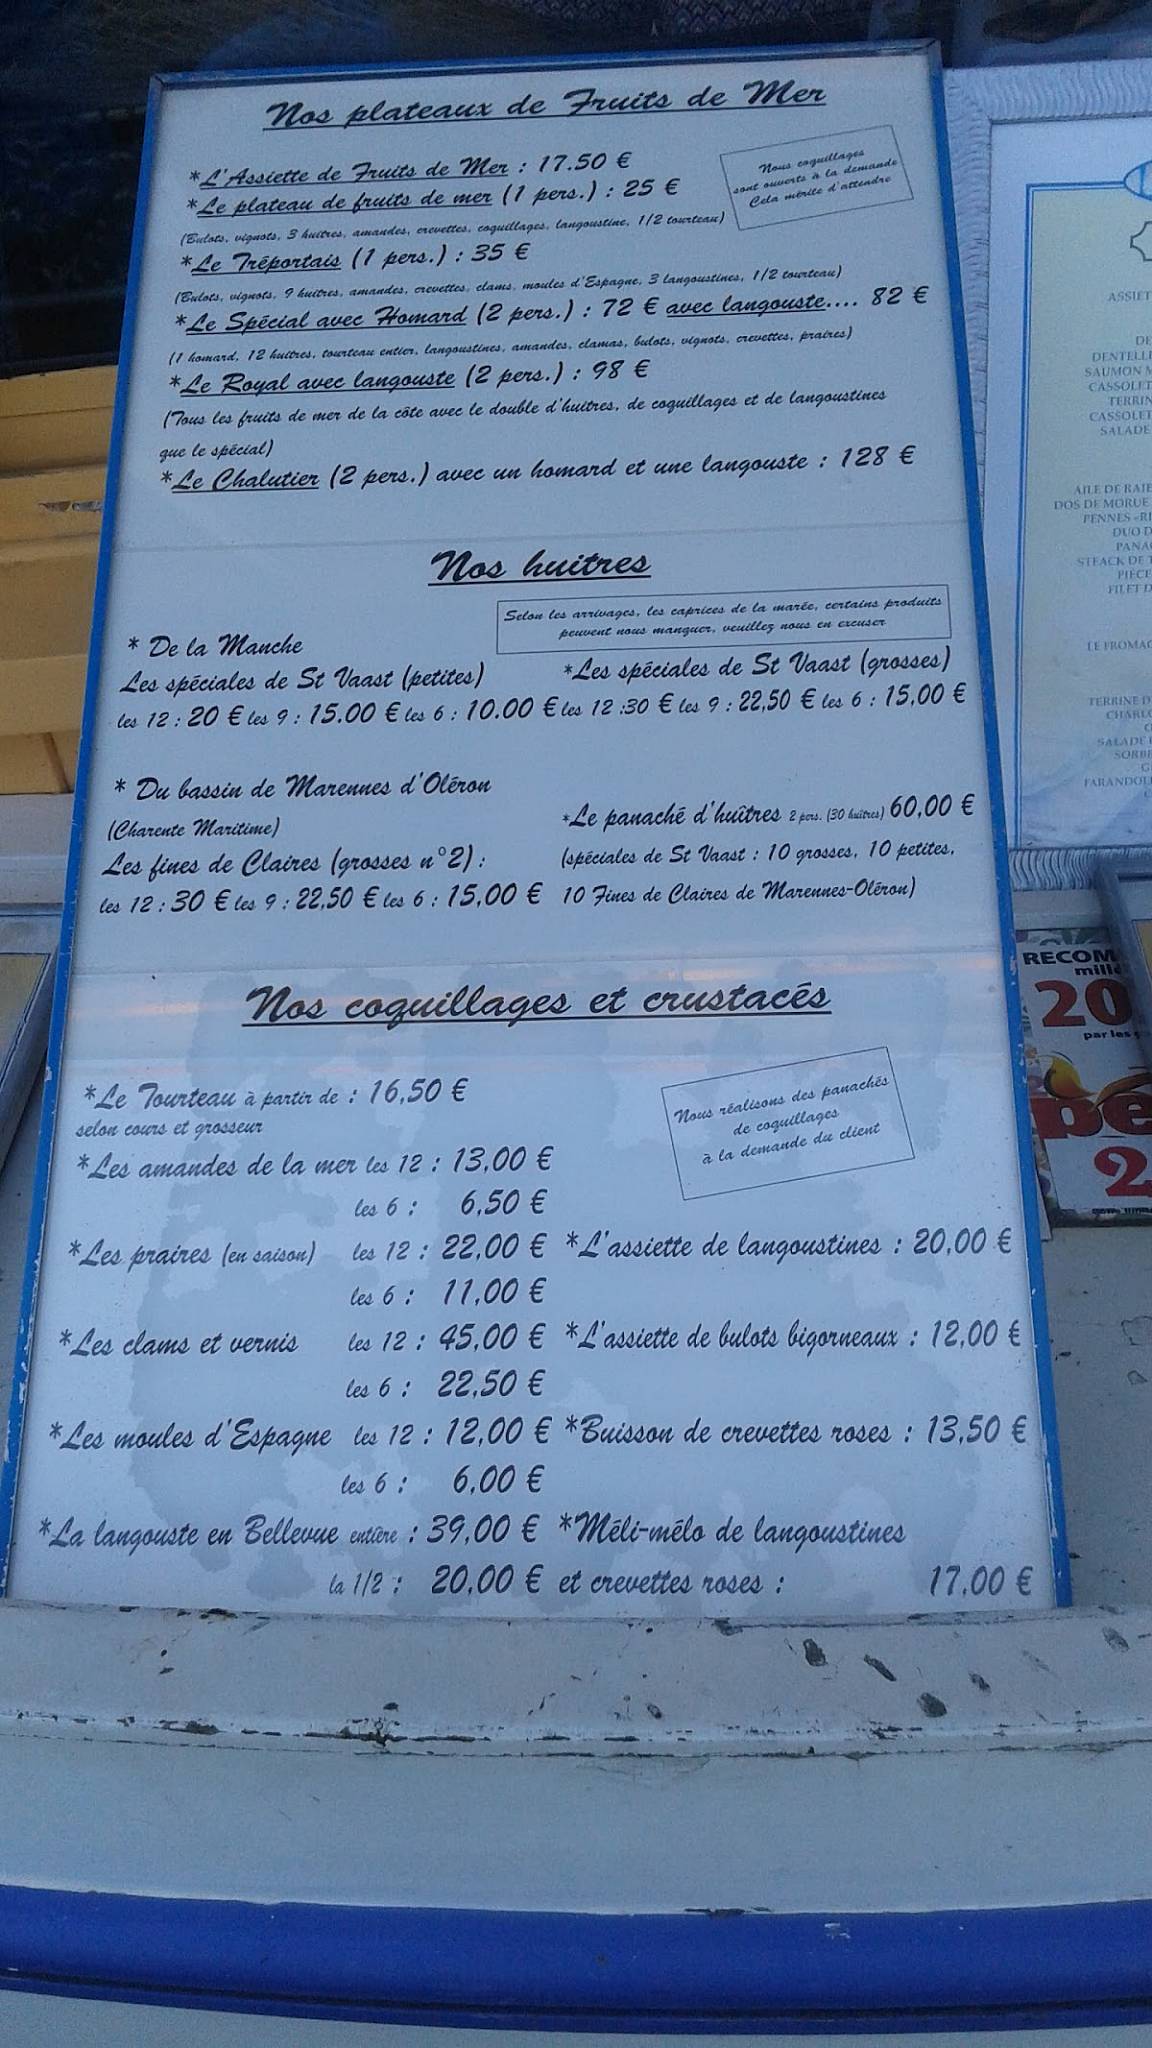 Nos plateaux de Fruits de Mer
*L'Assiette de Fruits de Mer : 17.50 €
Nous coquillages
sont ouverts à la demande
Cela mérite d'attendre
*Le plateau de fruits de mer (1 pers.) : 25 €
(Bulots, vignots, 3 huitres, amandes, crevettes, coquillages, langoustine, 1/2 tourteau)
*Le Tréportais (1 pers.) : 35 €
(Bulots, vignots, 9 huitres, amandes, crevettes, clams, moules d'Espagne, 3 langoustines, 1/2 tourteau)
*Le Spécial avec Homard (2 pers.) : 72 € avec langouste.... 82 €
(1 homard, 12 huitres, tourteau entier, langoustines, amandes, clamas, bulots, vignots, crevettes, praires)
*Le Royal avec langouste (2 pers.) : 98 €
(Tous les fruits de mer de la côte avec le double d'huitres, de coquillages et de langoustines
que le spécial)
*Le Chalutier (2 pers.) avec un homard et une langouste : 128 €
Nos huitres
Selon les arrivages, les caprices de la marée, certains produits
peuvent nous manquer, veuillez nous en excuser
* De la Manche
Les spéciales de St Vaast (petites)
les 12 : 20 € les 9 : 15.00 € les 6 : 10.00 €
*Les spéciales de St Vaast (grosses)
les 12 :30 € les 9 : 22,50 € les 6 : 15,00 €
* Du bassin de Marennes d'Oléron
(Charente Maritime)
Les fines de Claires (grosses n°2) :
les 12 : 30 € les 9 : 22,50 € les 6 : 15,00 €
*Le panaché d'huîtres 2 pers. (30 huîtres) 60,00 €
(spéciales de St Vaast : 10 grosses, 10 petites,
10 Fines de Claires de Marennes-Oléron)
Nos coquillages et crustacés
*Le Tourteau à partir de : 16,50 €
selon cours et grosseur
Nous réalisons des panachés
de coquillages
à la demande du client
*Les amandes de la mer les 12 : 13,00 €
les 6 : 6,50 €
*Les praires (en saison) les 12 : 22,00 €
les 6 : 11,00 €
*Les clams et vernis les 12 : 45,00 €
les 6 : 22,50 €
*Les moules d'Espagne les 12 : 12,00 €
les 6 : 6,00 €
*La langouste en Bellevue entière : 39,00 €
la 1/2 : 20,00 €
*L'assiette de langoustines : 20,00 €
*L'assiette de bulots bigorneaux : 12,00 €
*Buisson de crevettes roses : 13,50 €
*Méli-mélo de langoustines
et crevettes roses : 17,00 €
ASSIET
DE
DENTELLE
SAUMON M
CASSOLET
TERRIN
CASSOLET
SALADE
AILE DE RAIE
DOS DE MORUE
PENNES «RI
DUO D
PANA
STEACK DE T
PIÈCE
FILET D
LE FROMAG
TERRINE D
CHARLO
SALADE
SORBE
FARANDOL
RECOM
millé
20
par les
pe
2